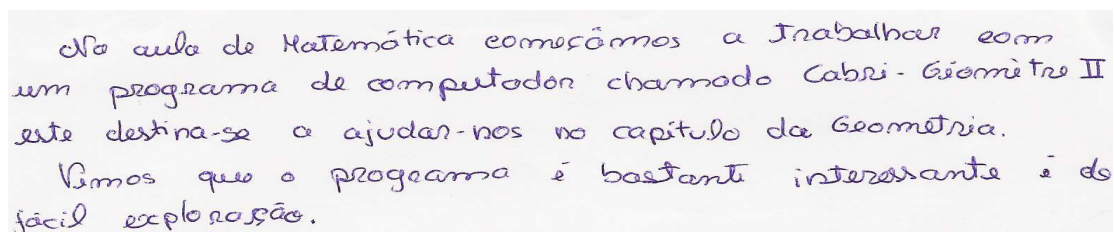 Na aula de Matemática começámos a Trabalhar com
um programa de computador chamado Cabri-Géomètre II
este destina-se a ajudar-nos no capítulo da Geometria.
Vimos que o programa é bastante interessante é de
fácil exploração.